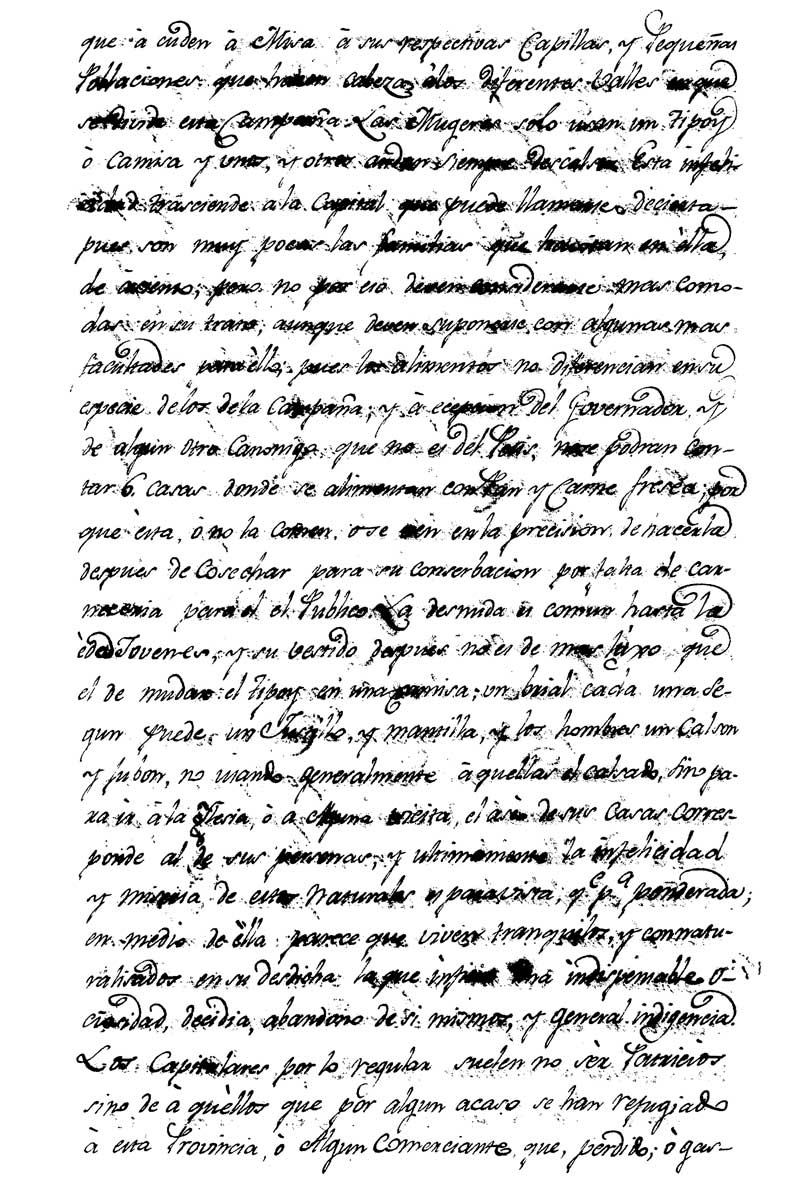 que à cuden à Misa à sus respectivas Capillas, y Pequeñas
Poblaciones que hacen cabeza, àlos diferentes Valles en que
se divide esta Campaña Las Mugeres solo usan un tipoy
ò Camisa y unos, y otros andan siempre descalsos Esta infeli-
cidad trasciende àla Capital, que puede llamarse decierta
pues son muy pocas las familias que havitan en èlla,
de àsiento; pero no por eso deven considerarse mas como-
das en su trato, aunque deven suponerse con algunas mas
facultades para èllo; pues los alimentos no diferencian en su
especie delos dela Campaña; y à ecepcion del Governador, y
de algun otro Canoniga que no es del Pais, no se podran con-
tar 6. Casas donde se alimentan con Pan y Carne fresca; por
que èsta, ò no la comen, o se ven en la precision de hacerla
despues de Cosechar para su conserbacion por falta de car-
neceria para el el Publico. La desnuda es comun hasta la
èdad Jovenes, y su vestido despues no es de mas luxo que
el de mudar el tipoy en una camisa; un brial cada una se-
gun puede, un Jusillo, y mantilla, y los hombres un Calson
y Jubon, no usando generalmente à quellas el calsado, sino pa-
ra ir à la Iglesia, ò a Alguna vicita, el asèo de sus Casas Corres-
ponde al de sus personas; y ultimamente la infelicidad
y miseria de estos Naturales es para vista, q.e p.a ponderada;
en medio de èlla parece que viven tranquilos, y connatu-
ralisados en su desdicha la que infiere una indispensable o-
ciosidad, decidia, abandono de si mismos, y general indigencia.
Los Capitulares por lo regular suelen no sèr Patricios
sino de à quèllos que por algun acaso se han refugiado
à esta Provincia, ò Algun Comerciante, que, perdido; ò gas-